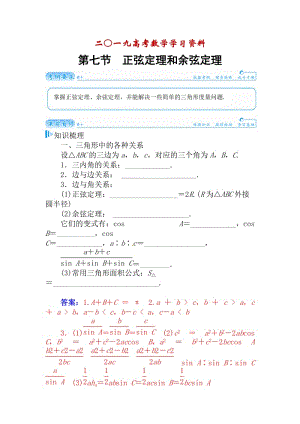 二〇一九高考数学学习资料
第七节 正弦定理和余弦定理
掌握正弦定理、余弦定理，并能解决一些简单的三角形度量问题.
知识梳理
一、三角形中的各种关系
设△ABC的三边为a，b，c，对应的三个角为A，B，C.
1．三内角的关系：__________.
2．边与边关系：__________.
3．边与角关系：
(1)正弦定理：__________=2R.(R为△ABC外接圆半径)
(2)余弦定理：__________.
它们的变式有：cos A=__________，cos B=__________，cos C=__________，a∶b∶c=__________，
a+b+c/sin A+sin B+sin C=__________.
(3)常用三角形面积公式：S△=__________.
答案：1.A+B+C=π 2.a+b>c，b+c>a，c+a>b，a-b<c，b-c<a，c-a<b
3.(1)a/sin A=b/sin B=c/sin C (2)c²=a²+b²-2abcos
C，b²=a²+c²-2accos B，a²=b²+c²-2bccos A
sin A∶sin B∶sin C